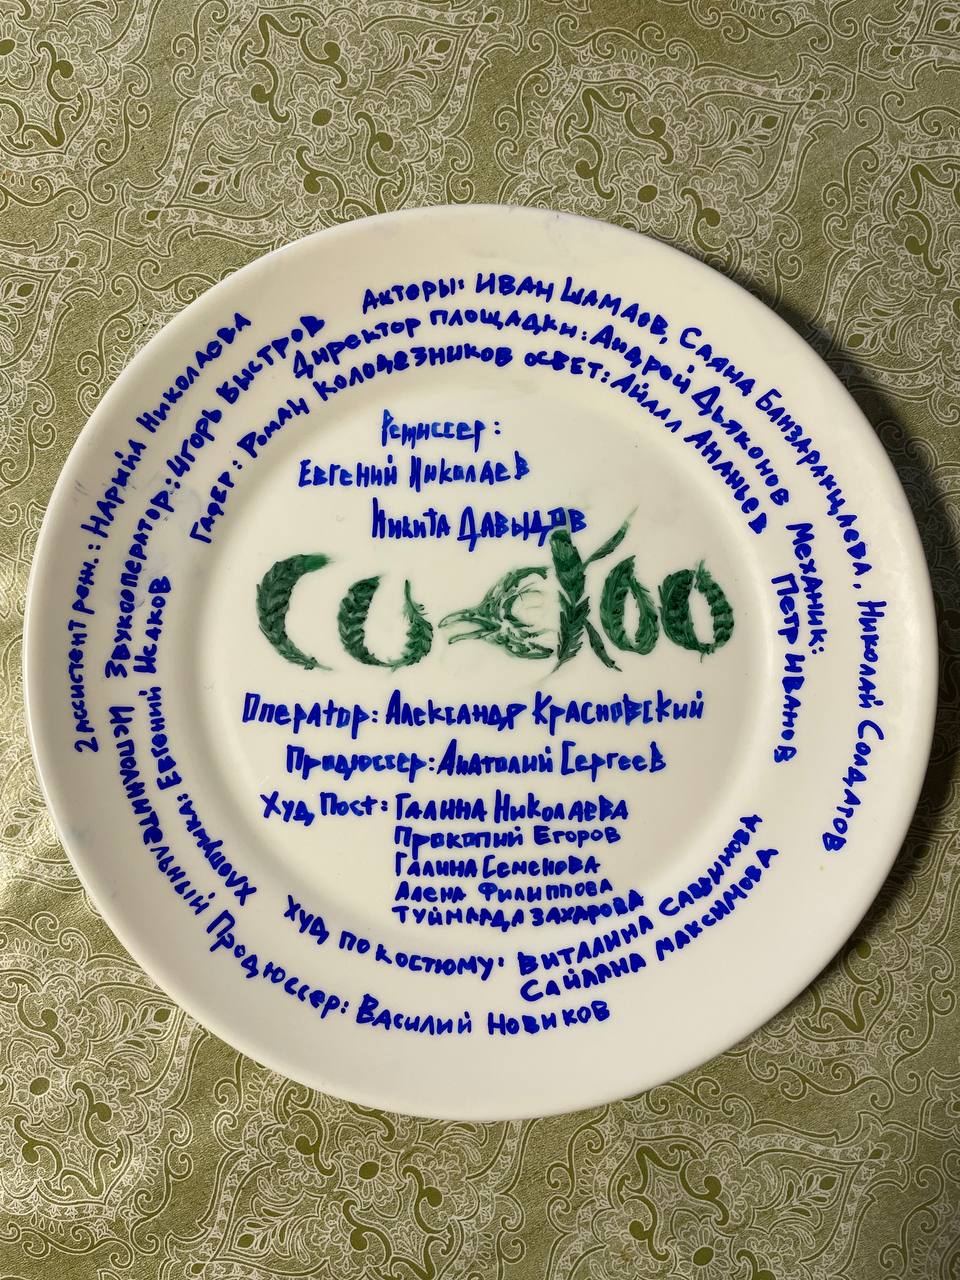 Актеры: Иван Шамаев, Саяна Банзаракцаева, Николай Солдатов
Директор площадки: Андрей Дьяконов Механик:
Петр Иванов
Гафер: Роман Колодезников освет: Айаал Ананьев
2 ассистент реж.: Нарыйа Николаева
Звукооператор: Игорь Быстров
Хлопушка: Евгений Исаков
Исполнительный Продюссер: Василий Новиков
Режиссер:
Евгений Николаев
Никита Давыдов
cuckoo
Оператор: Александр Красновский
Продюссер: Анатолий Сергеев
Худ Пост: Галина Николаева
Прокопий Егоров
Галина Семенова
Алена Филиппова
Туймаада Захарова
Худ по костюму: Виталина Саввинова
Сайаана Максимова